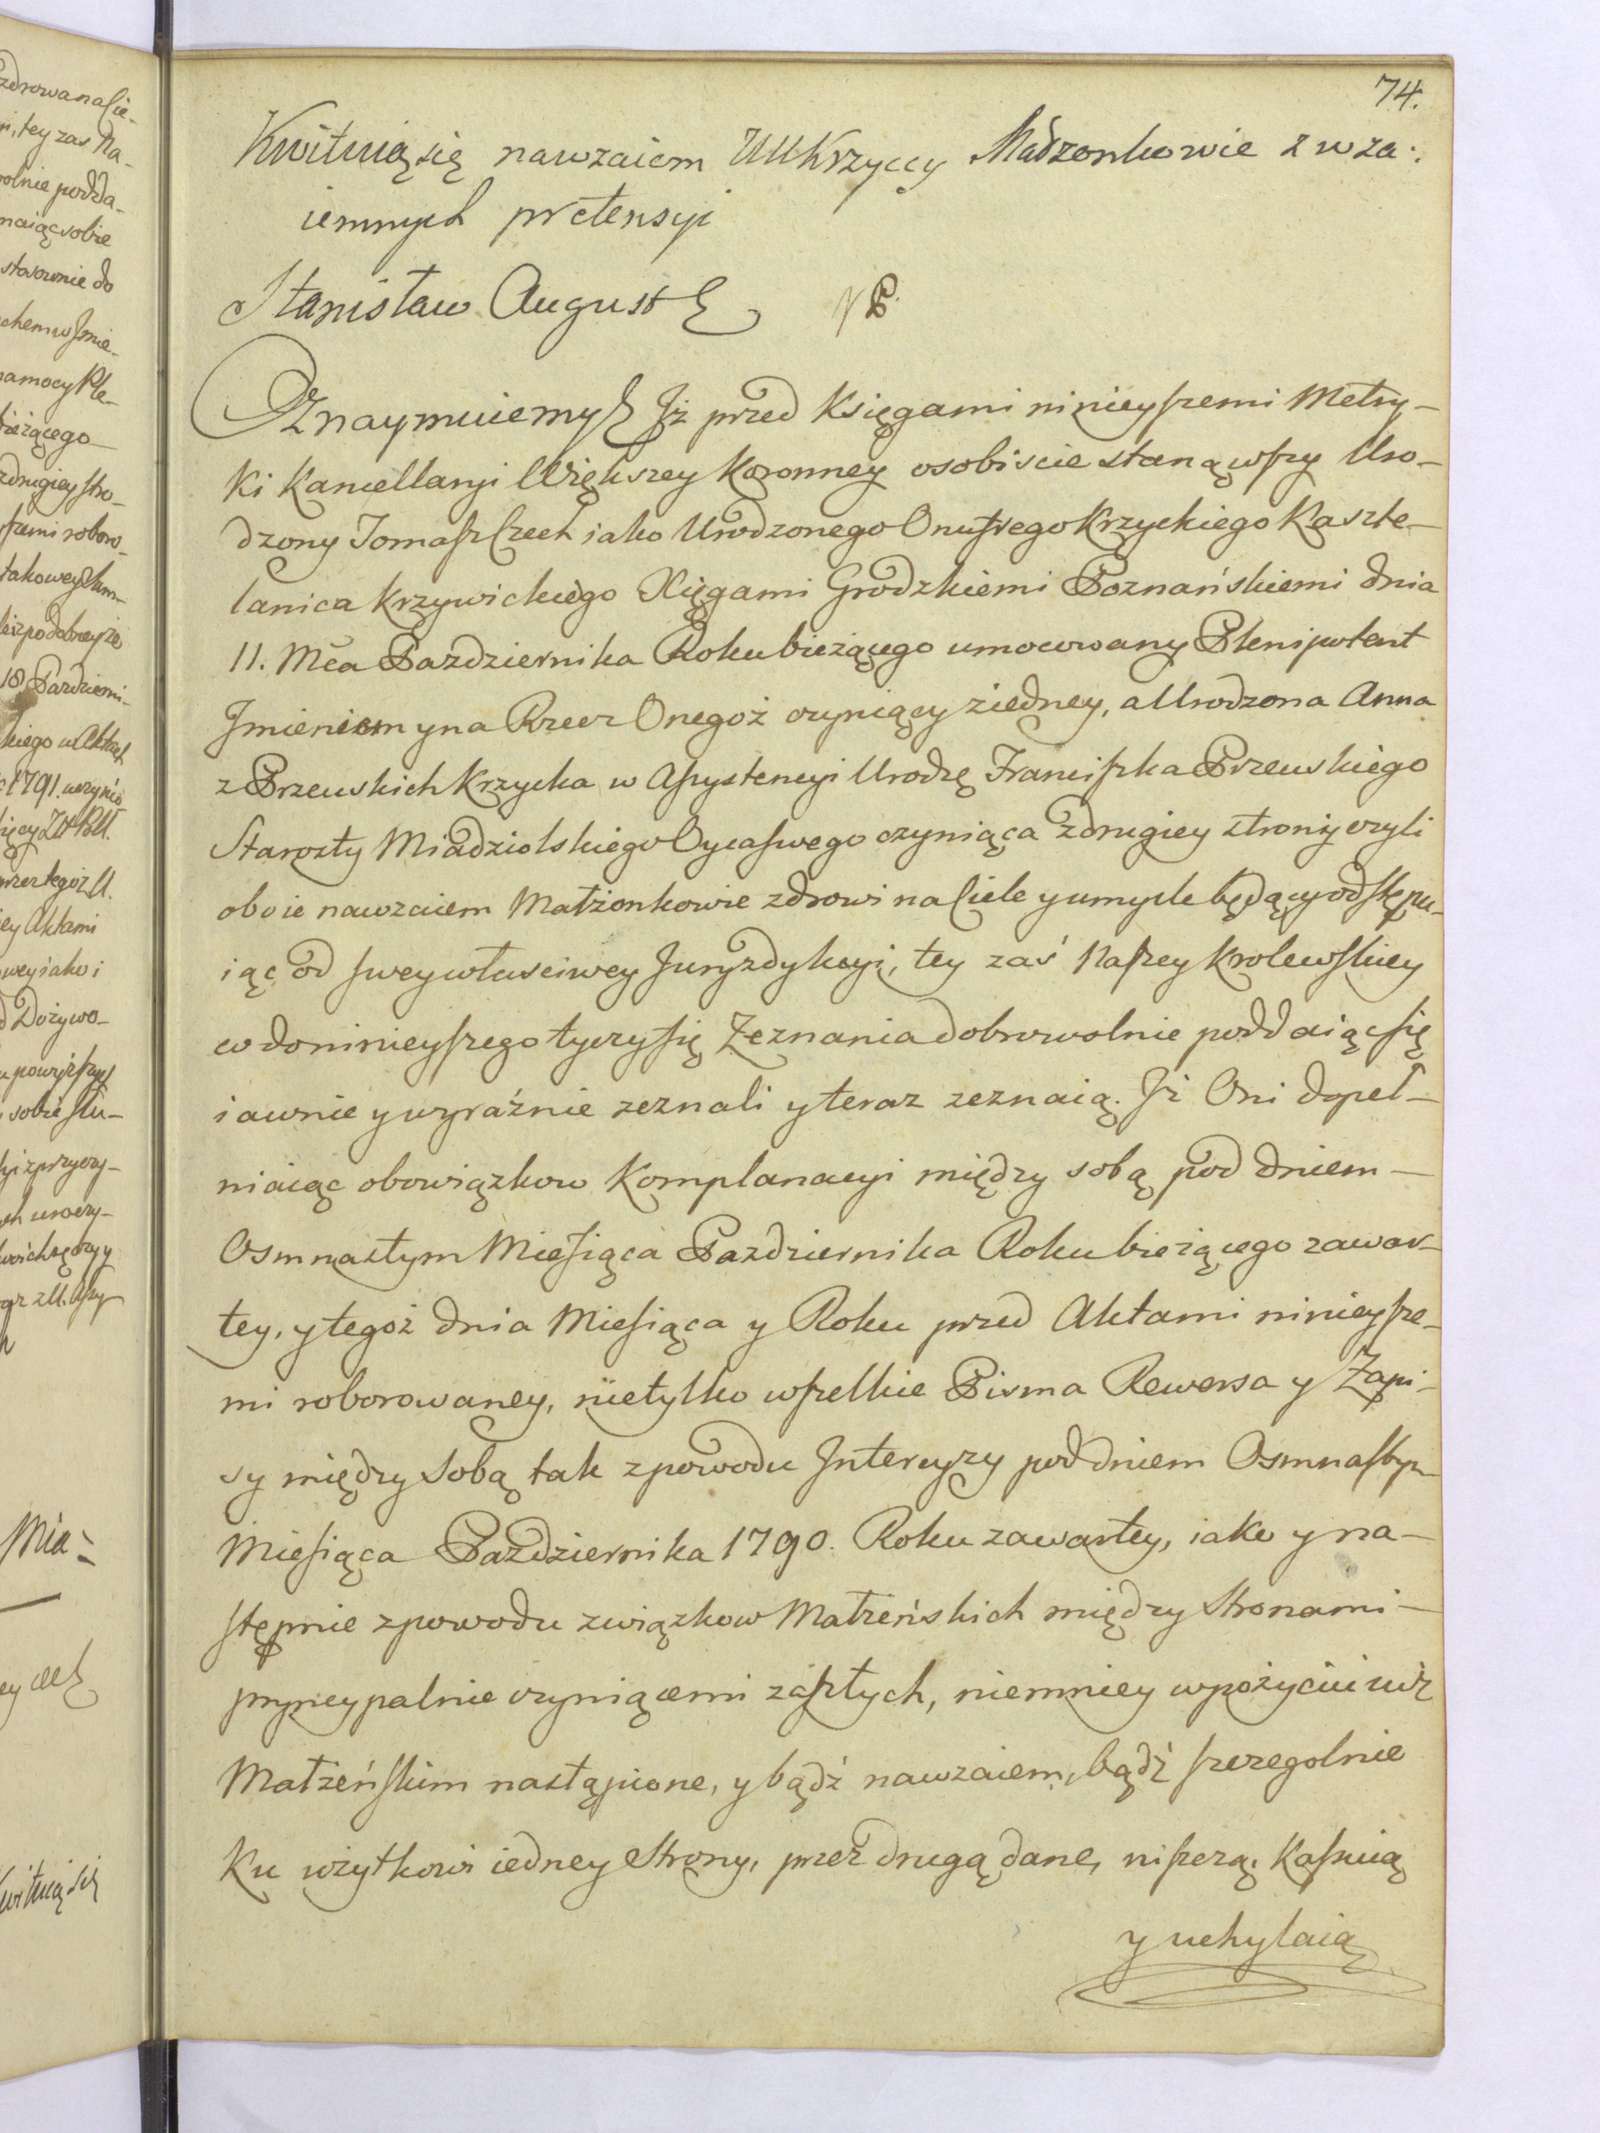 74.
Kwituią się nawzaiem UU Krzyccy Małżonkowie z wza-
iemnych pretensyi
Stanisław August
Oznaymuiemy Jż przed Księgami ninieyszemi Metry-
ki Kancellaryi Większey Koronney osobiscie stanąwszy Uro-
dzony Tomasz Czech iako Urodzonego Onufrego Krzyckiego Kaszte-
lanica Krzywickiego Xięgami Grodzkiemi Poznańskiemi dnia
11. Mca Pazdziernika Roku bieżącego umocowany Plenipotent
Jmieniem y na Rzecz Onegoż czyniący ziedney, a Urodzona Anna
z Brzeuskich Krzycka w Assystencyi Urodzę Franciszka Brzeuskiego
Starosty Miadziolskiego Oyca swego czyniąca z drugiey strony czyli
oboie nawzaiem Małżonkowie zdrowi na Ciele y umysle będący odstępu-
iąc od swey własciwey Juryzdykcyi, tey zaś Naszey Krolewskiey
co do ninieyszego tyczy się Zeznania dobrowolnie poddaiąc się
iawnie y wyraźnie zeznali y teraz zeznaią. Jż Oni dopeł-
niaiąc obowiązkow Komplanacyi między sobą pod dniem
Osmnastym Miesiąca Pazdziernika Roku bieżącego zawar-
tey, y tegoż dnia Miesiąca y Roku przed Aktami ninieysze-
mi roborowaney, nietylko wszelkie Pisma Rewersa y Zapi-
sy między sobą tak z powodu Intercyzy pod dniem Osmnastym
Miesiąca Pazdziernika 1790. Roku zawartey, iako y na-
stępnie z powodu związkow Małzeńskich między Stronami
pryncypalnie czyniącemi zaszłych, niemniey w pożyciu iuż
Małzeńskim nastąpione, y bądź nawzaiem, bądź szczegolnie
Ku użytkowi iedney Strony, przez drugą dane, niszczą, Kassuią
y uchylaią
zdrowa na Cie-
tey zas Na-
olnie podda-
naiąc sobie
stosownie do
bieżącego
z drugiey stro-
szemi roboro-
takowey
18 Pazdzierni-
kiego w Aktach
1791. uczynio
przez tegoż U.
ey Aktami
wey iako i
Dożywo-
powyższey
sobie słu-
Mia-
Kwituią się